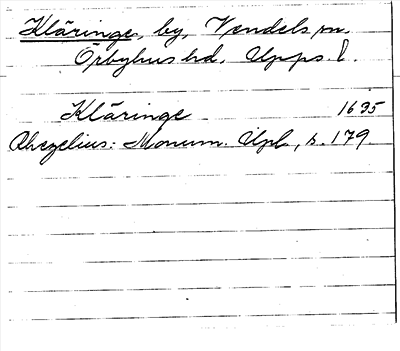 Kläringe, by, Vendels sn.
Örbyhus hd. Upps. l.
Kläringe 1695
Rhezelius: Monum. Upl., s. 179.